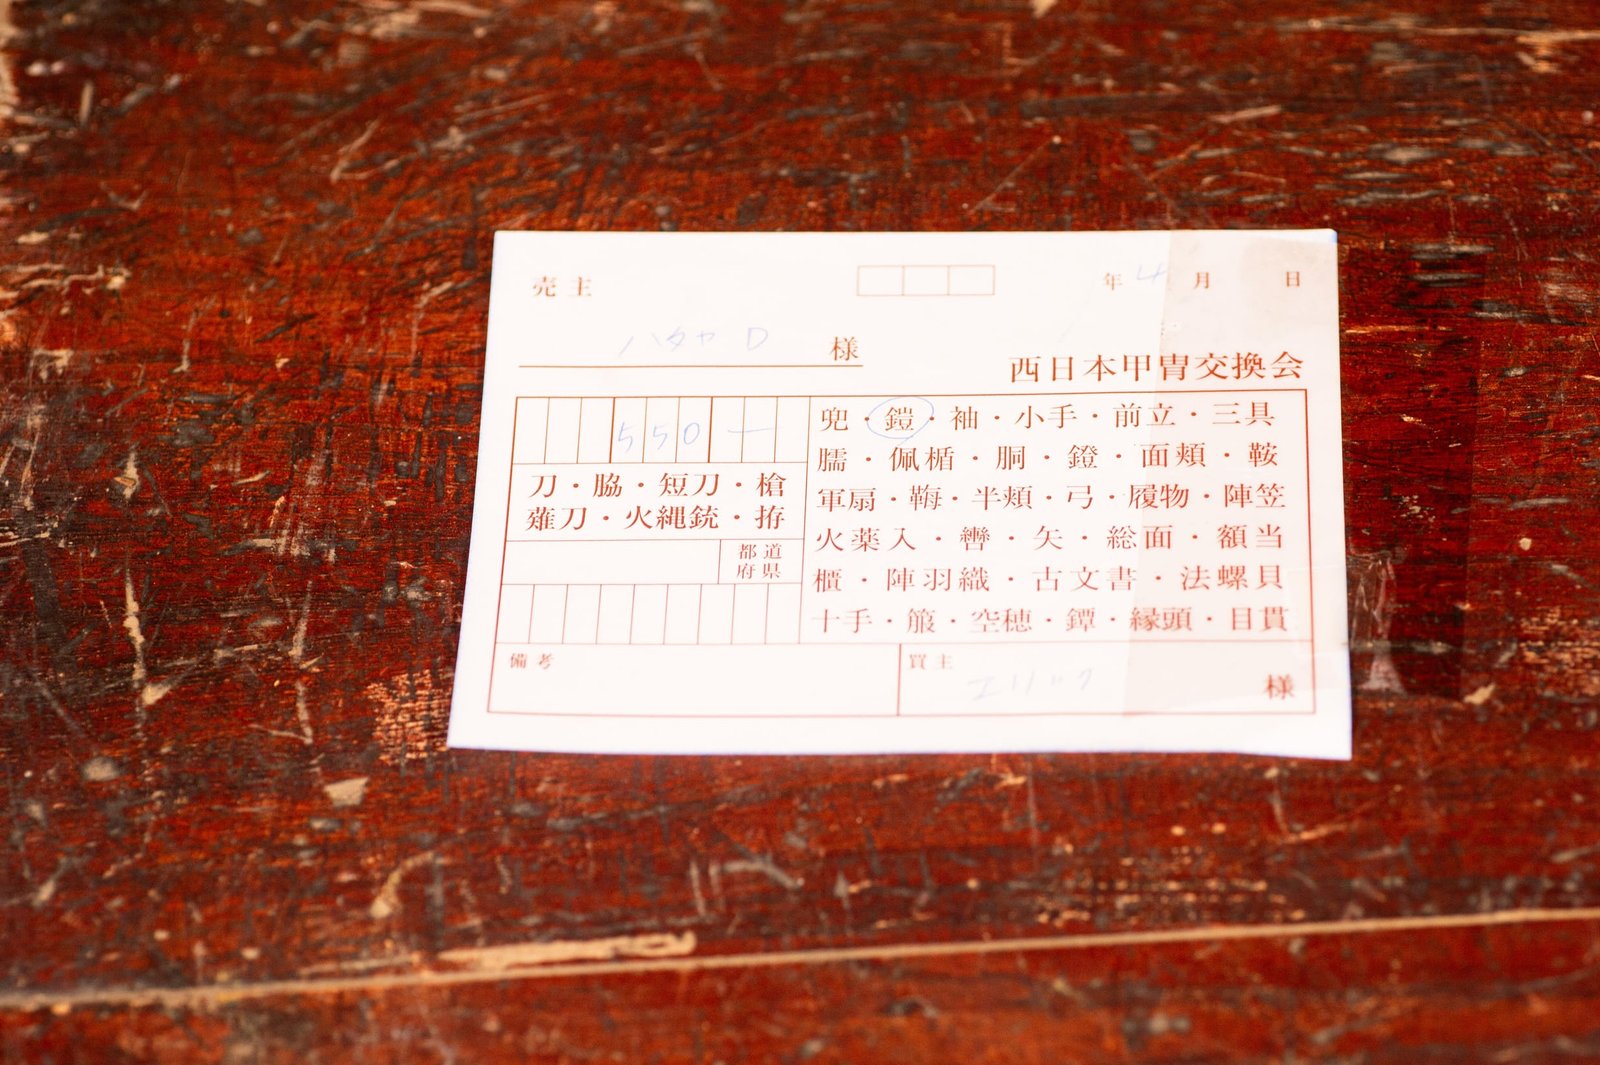 売主
年 4 月 日
ハタヤ D 様
西日本甲冑交換会
550 —
刀・脇・短刀・槍
薙刀・火縄銃・拵
都道
府県
兜・鎧・袖・小手・前立・三具
臑・佩楯・胴・鐙・面頬・鞍
軍扇・鞍・半頬・弓・履物・陣笠
火薬入・轡・矢・総面・額当
櫃・陣羽織・古文書・法螺貝
十手・箙・空穂・鐔・縁頭・目貫
備考
買主
エリック 様